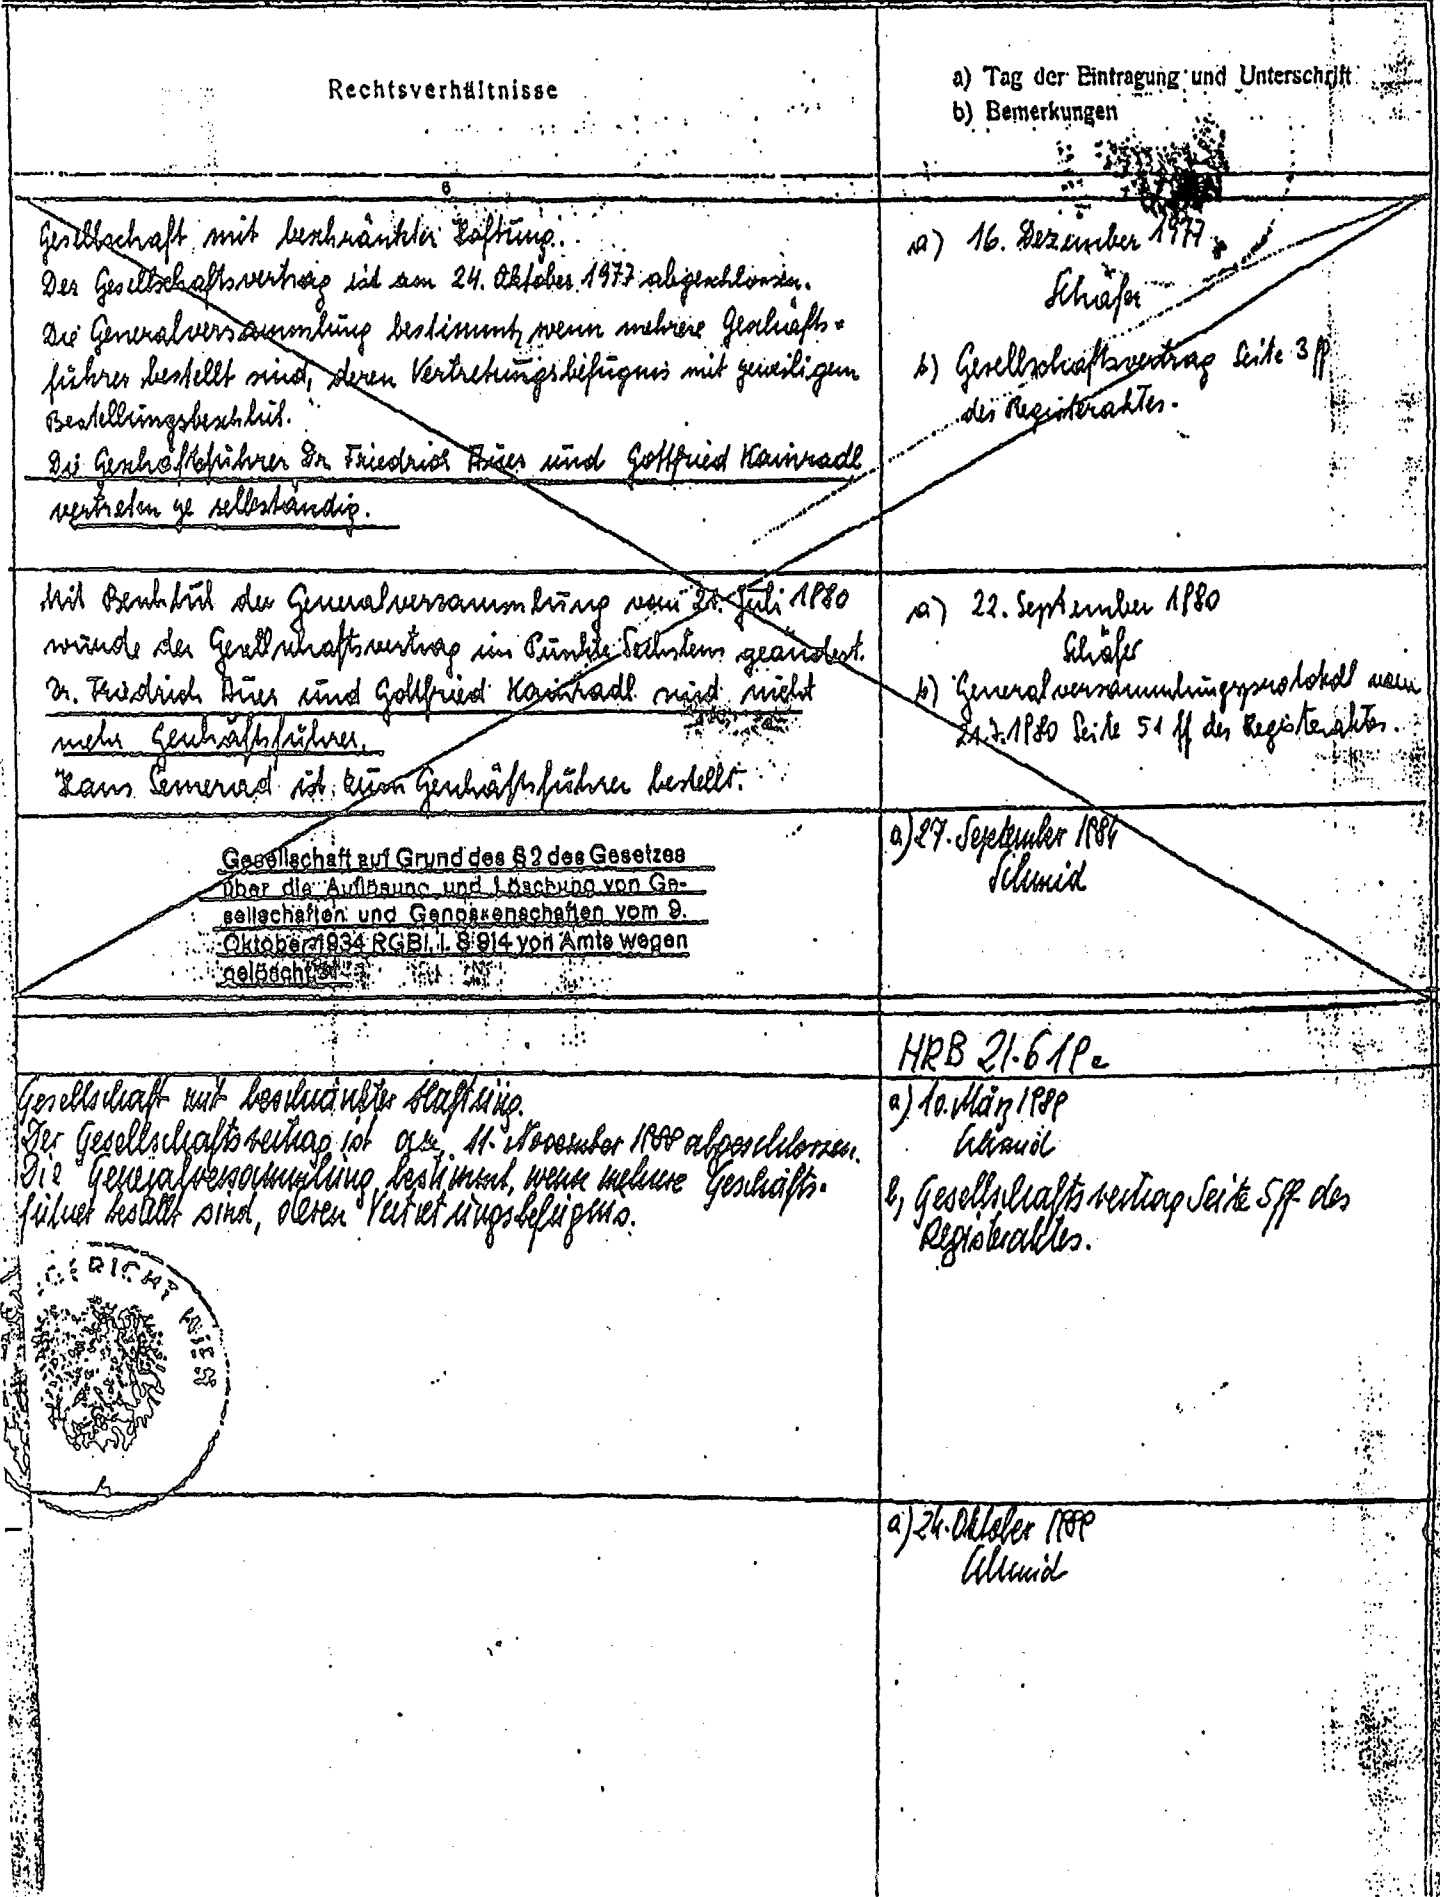 Rechtsverhältnisse
a) Tag der Eintragung und Unterschrift
b) Bemerkungen
6
Gesellschaft mit beschränkter Haftung.
Der Gesellschaftsvertrag ist am 24. Oktober 1977 abgeschlossen.
Die Generalversammlung bestimmt, wenn mehrere Geschäfts-
führer bestellt sind, deren Vertretungsbefugnis mit jeweiligem
Bestellungsbeschluß.
Die Geschäftsführer Dr. Friedrich und Gottfried Kainradl
vertreten je selbständig.
a) 16. Dezember 1977
Schäfer
b) Gesellschaftsvertrag Seite 3 ff
des Registeraktes.
Mit Beschluß der Generalversammlung vom 21. Juli 1980
wurde der Gesellschaftsvertrag im Punkte Sechstens geändert.
Dr. Friedrich und Gottfried Kainradl sind nicht
mehr Geschäftsführer.
Hans Semerad ist zum Geschäftsführer bestellt.
a) 22. September 1980
Schäfer
b) Generalversammlungsprotokoll vom
21.7.1980 Seite 51 ff des Registeraktes.
Gesellschaft auf Grund des § 2 des Gesetzes
über die Auflösung und Löschung von Ge-
sellschaften und Genossenschaften vom 9.
Oktober 1934 RGBl. I. S 914 von Amts wegen
gelöscht.
a) 27. September 1984
Schmid
HRB
Gesellschaft mit beschränkter Haftung.
Der Gesellschaftsvertrag ist am 11. November 1988 abgeschlossen.
Die Generalversammlung bestimmt, wenn mehrere Geschäfts-
führer bestellt sind, deren Vertretungsbefugnis.
a) 10. März 1989
Schmid
b, Gesellschaftsvertrag Seite 5 ff des
Registeraktes.
GERICHT WIEN
a) 24. Oktober 1989
Schmid